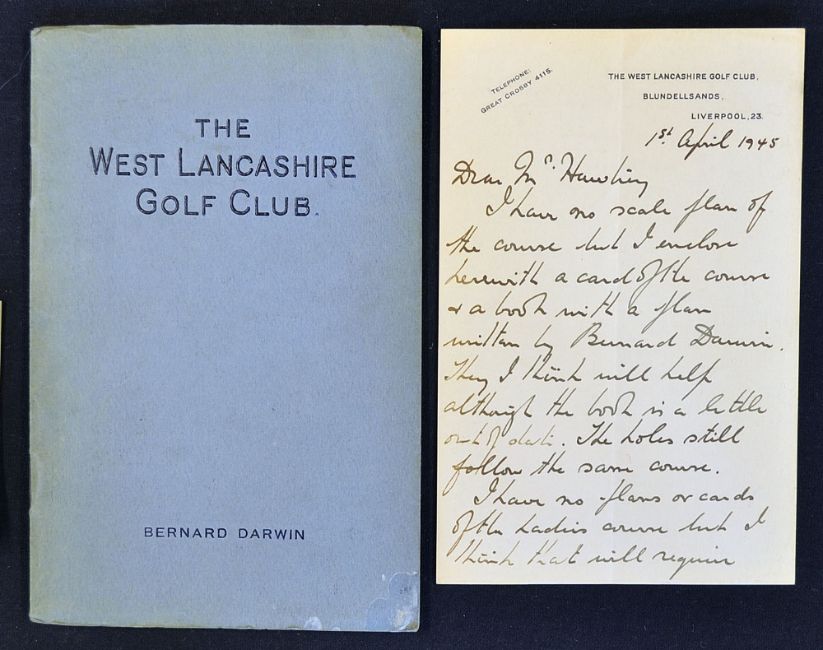 THE
WEST LANCASHIRE
GOLF CLUB.
BERNARD DARWIN
TELEPHONE:
GREAT CROSBY 4115.
THE WEST LANCASHIRE GOLF CLUB,
BLUNDELLSANDS,
LIVERPOOL, 23.
1st April 1945
Dear Mr
I have no scale plan of
the course but I enclose
herewith a card of the course
& a book with a plan
written by Bernard Darwin.
They I think will help
although the book is a little
out of date. The holes still
follow the same course.
I have no plans or cards
of the Ladies course but I
think that will require